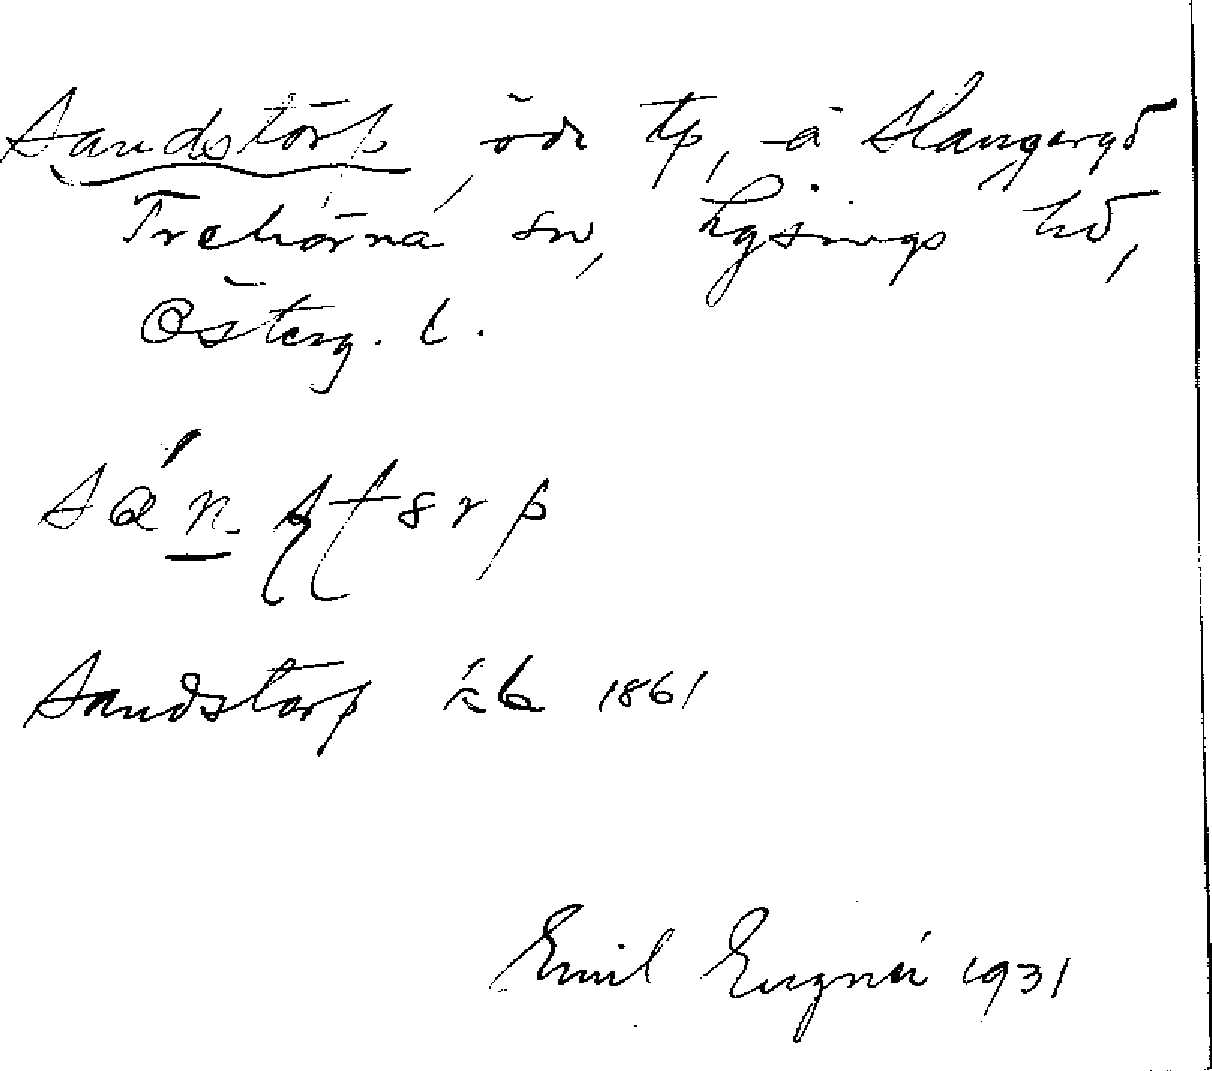 Sandstorp, öde tp, å Slangergd
Trehörna sn, Lysings hd,
Österg. l.
Sandstorp kb 1861
Emil Eugner 1931